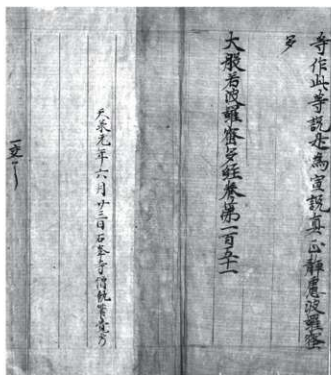 等作此等說是為宣說真正靜慮波羅蜜
多
大般若波羅蜜多經卷第一百五十一
天永元年六月廿三日石峯寺僧
一交了